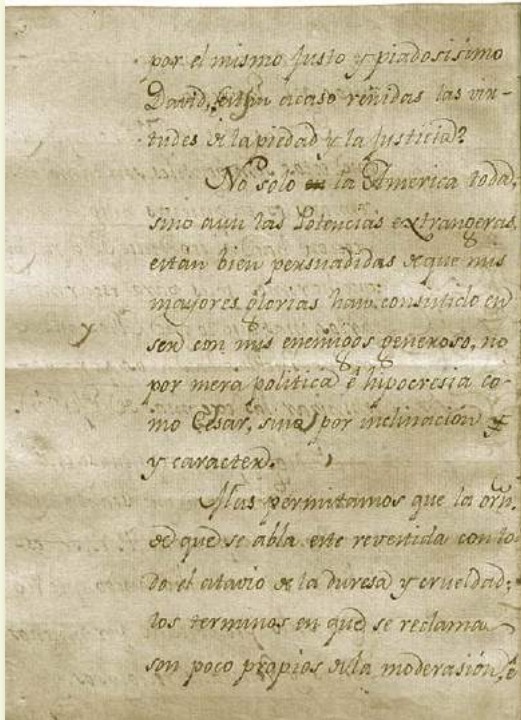 por el mismo Justo y piadosisimo
David, estan acaso reñidas las vir-
tudes de la piedad y la Justicia?
No solo en la America toda,
sino aun las Potencias extrangeras,
estan bien persuadidas de que mis
mayores glorias han consistido en
ser con mis enemigos generoso, no
por mera politica é hipocresia co-
mo Cesar, sino por inclinación
y caracter.
Mas permitamos que la orn.
de que se abla este revestida con to-
do el atavio de la duresa y crueldad;
los terminos en que se reclama
son poco propios de la moderasión, é